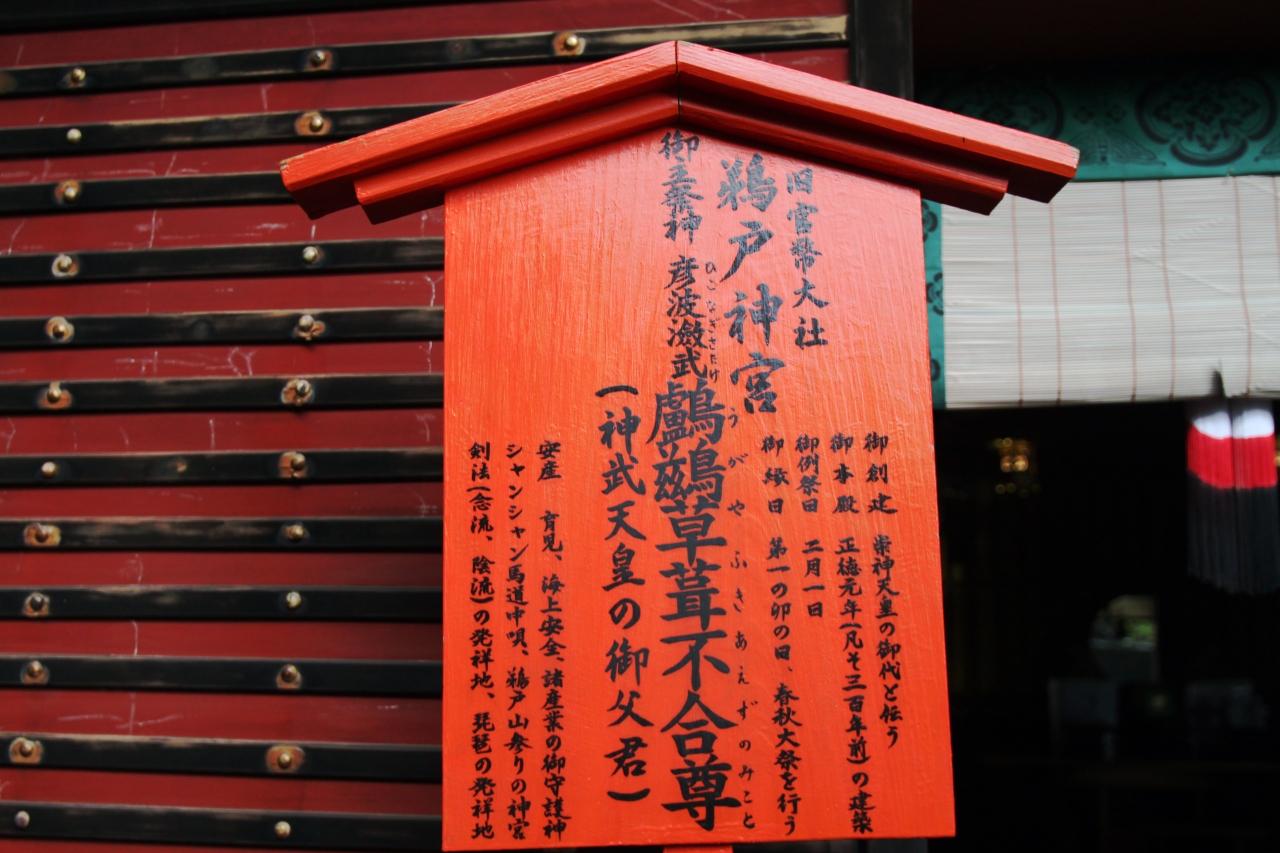 旧官幣大社
鵜戸神宮
御創建 崇神天皇の御代と伝う
御本殿 正徳元年(凡そ三百年前)の建築
御例祭日 二月一日
御縁日 第一の卯の日、春秋大祭を行う
御主祭神 彦波瀲武鸕鷀草葺不合尊
ひこなぎさたけ うがやふきあえずのみこと
(神武天皇の御父君)
安産 育児、海上安全、諸産業の御守護神
シャンシャン馬道中唄、鵜戸山参りの神宮
剣法(念流、陰流)の発祥地、琵琶の発祥地